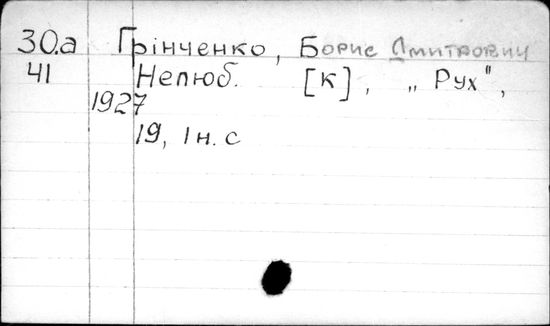 30.а Грінченко, Борис Дмитрович
41 Нелюб. [К], „Рух",
1927
19, 1 н. с